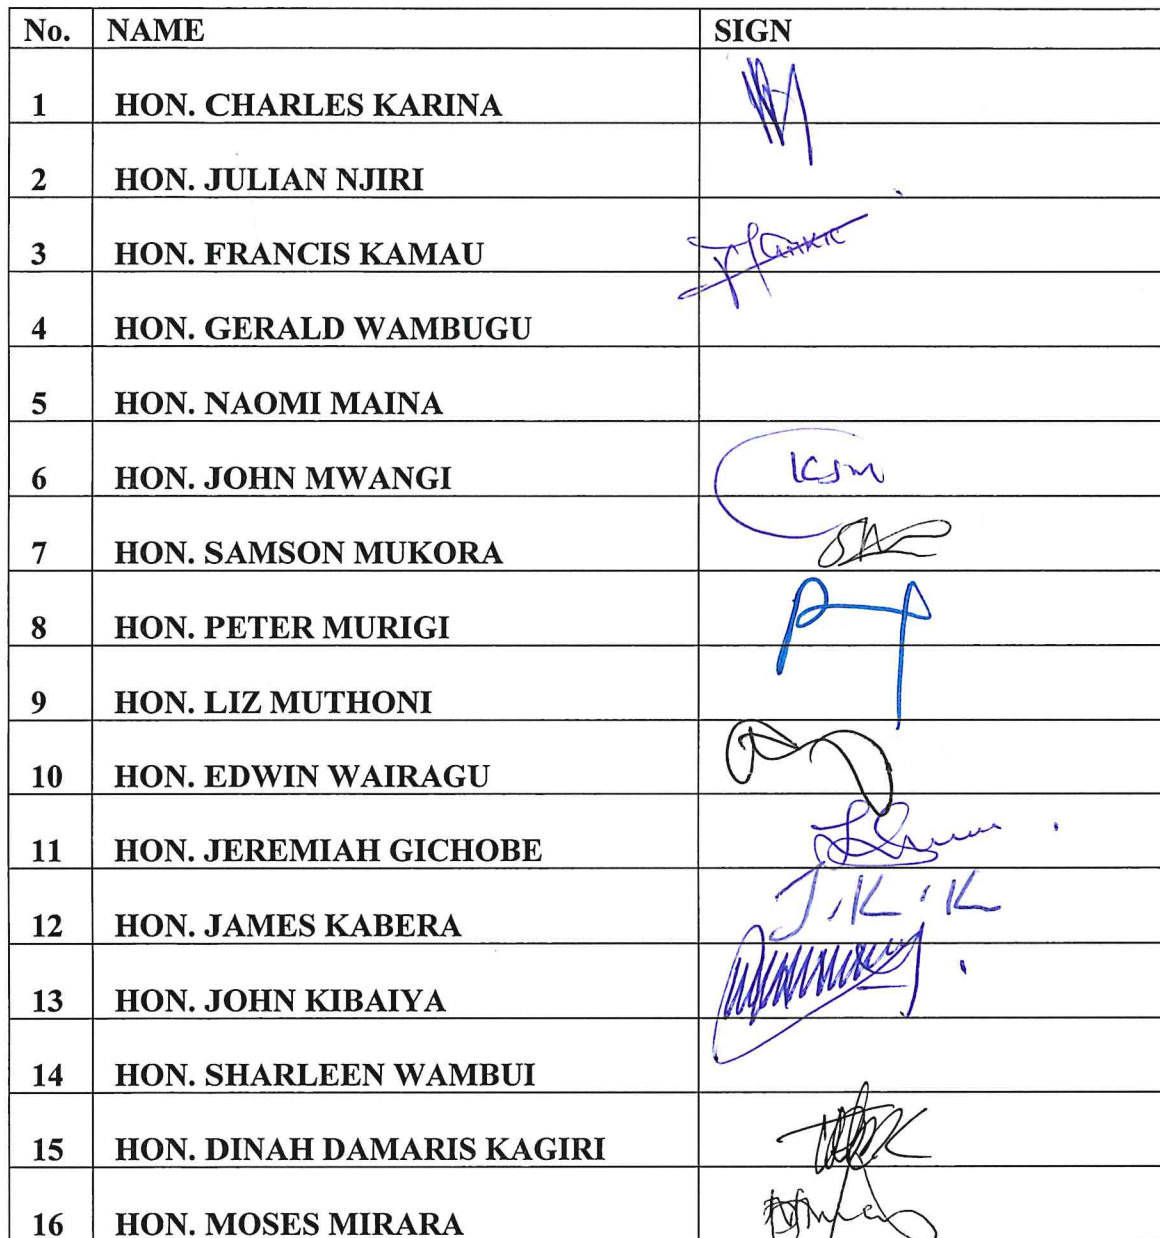 No. NAME SIGN
1 HON. CHARLES KARINA
2 HON. JULIAN NJIRI
3 HON. FRANCIS KAMAU
4 HON. GERALD WAMBUGU
5 HON. NAOMI MAINA
6 HON. JOHN MWANGI KJM
7 HON. SAMSON MUKORA
8 HON. PETER MURIGI
9 HON. LIZ MUTHONI
10 HON. EDWIN WAIRAGU
11 HON. JEREMIAH GICHOBE
12 HON. JAMES KABERA J.K.K
13 HON. JOHN KIBAIYA
14 HON. SHARLEEN WAMBUI
15 HON. DINAH DAMARIS KAGIRI
16 HON. MOSES MIRARA